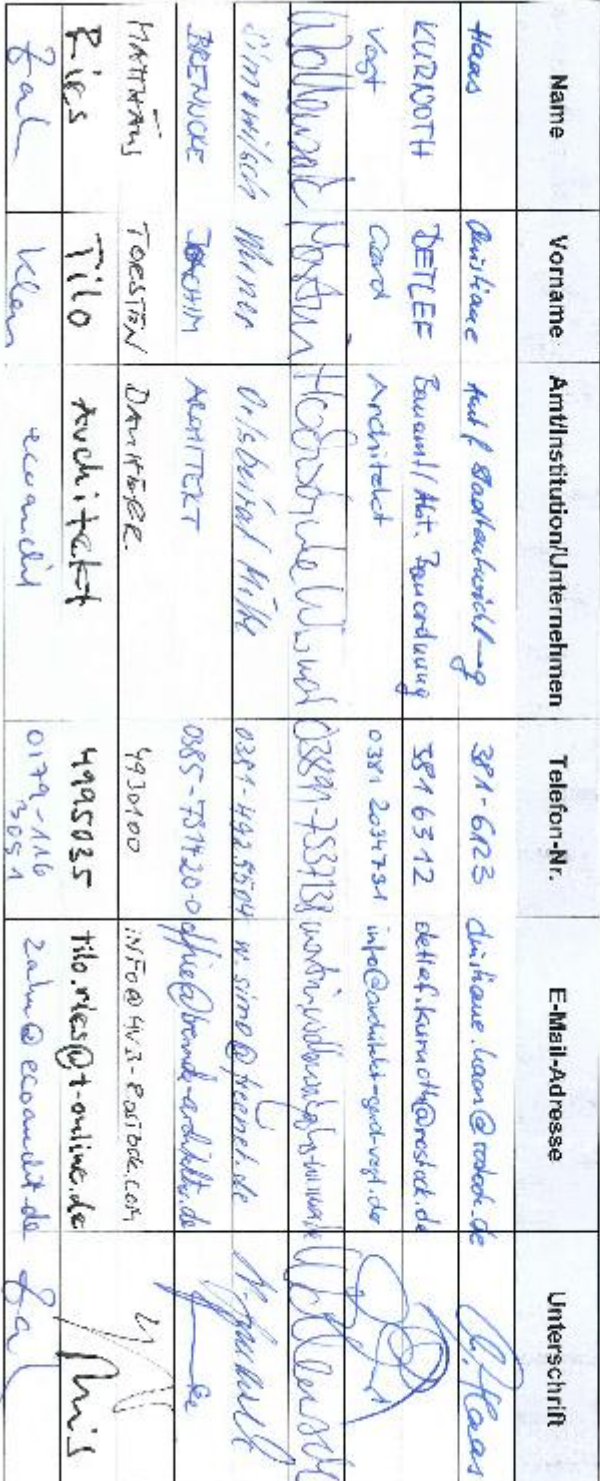 Name Vorname Amt/Institution/Unternehmen Telefon-Nr. E-Mail-Adresse Unterschrift
Haas Christiane Amt f. Stadtentwicklung 381-6123 christiane.haas@rostock.de C. Haas
KURNOTH DETLEF Bauamt/Abt. Bauordnung 381 6312 detlef.kurnoth@rostock.de
Vogt Gerd Architekt 0381 2034731 info@architekt-gerd-vogt.de
Wollensak Martin Hochschule Wismar 03841-7537138 Wollensak
Simowitsch Werner Ortsbeirat Mitte w.simo@freenet.de
BRENNCKE JOACHIM ARCHITEKT 0385-731420-0
MATTHÄUS TORSTEN 4930100
Ries Tilo Architekt 4995035 tilo.ries@t-online.de Ries
Klaus ecoaudit 0179-116
3051 zahn@ecoaudit.de